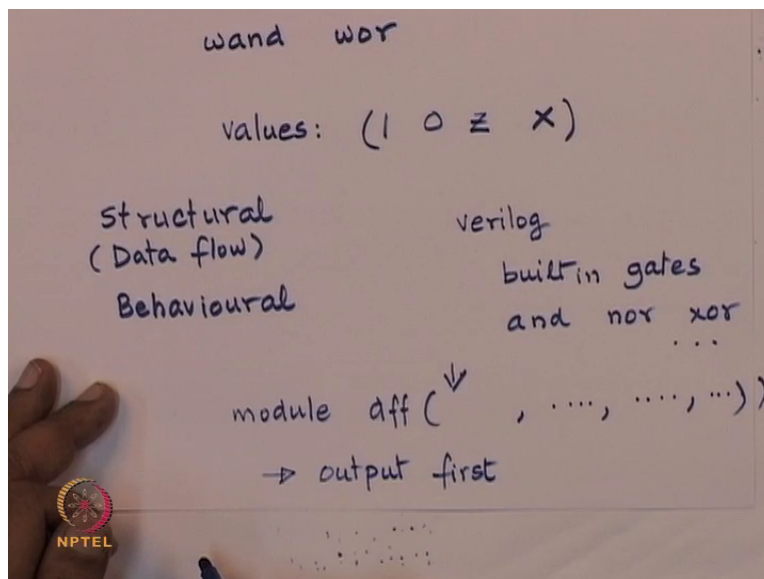 wand wor
values: (1 0 z x)
structural
(Data flow)
Behavioural
verilog
builtin gates
and nor xor
...
module dff( , ...., ...., ...))
→ output first
NPTEL